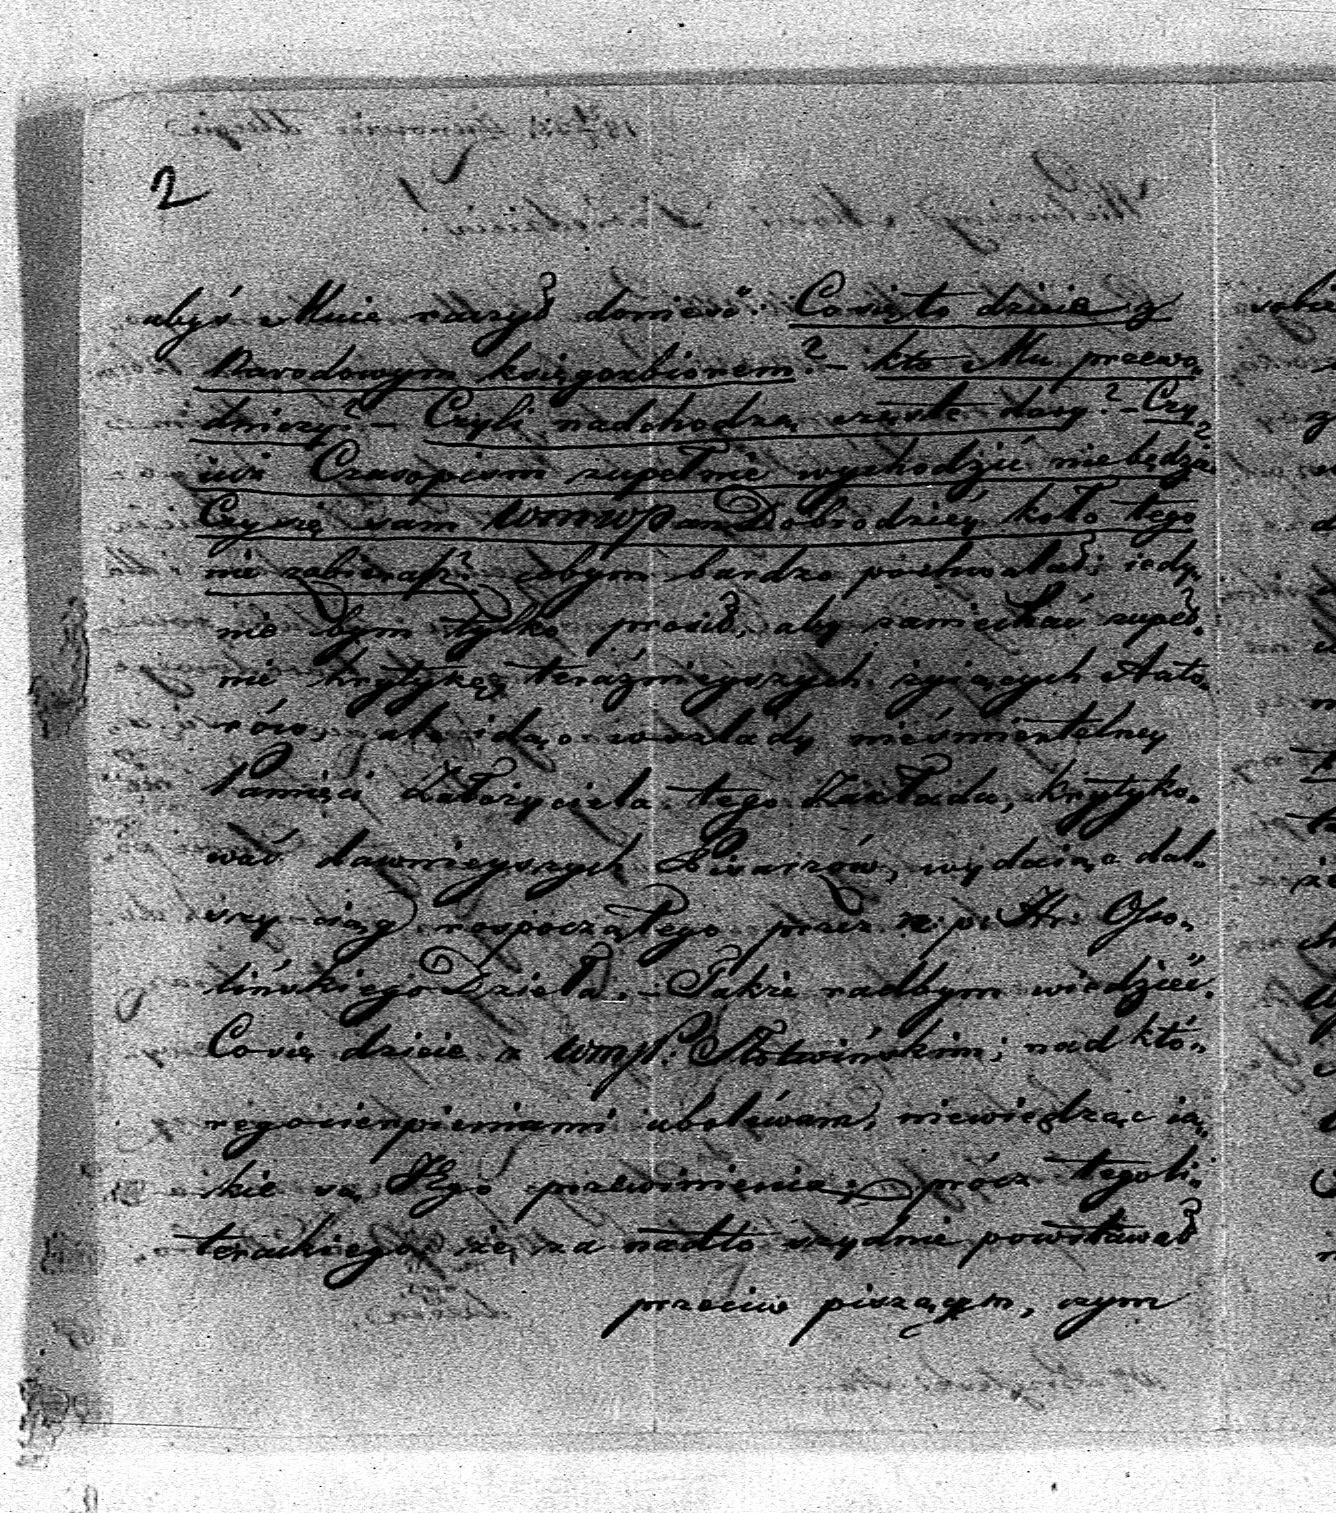 2
abyś Mnie raczył donieść: Co się to dzieie z
Narodowym księgozbiorem? – kto Mu przewo„
dniczy? – Czyli nadchodzą częste dary? – Czy
iuż Czasopism zupełnie wychodzić niebędzie?
Czy się sam WMWPan Dobrodziey koło tego
nie zabierasz? cobym bardzo pochwalał; iedy„
nie bym tylko prosił, aby zaniechać zupeł„
nie krytykę teraźnieyszych żyiących Auto„
rów, ale idąc w szlady nieśmiertelney
Pamięci Założyciela tego Zakładu, krytyko„
wać dawnieyszych Pisarzów, wydaiąc dal„
szy ciąg rospoczątego przez ś: p: Hr: Osso„
lińskiego Dzieła. – Także radbym wiedzieć.
Co się dzieie z WMP: Słotwińskim; nad któ„
rego cierpieniami ubolewam, niewiedząc ia„
kie są Jego przewinienia; prócz tego li„
terackiego, że za nadto szydnie powstawał
przeciw piszącym, czym